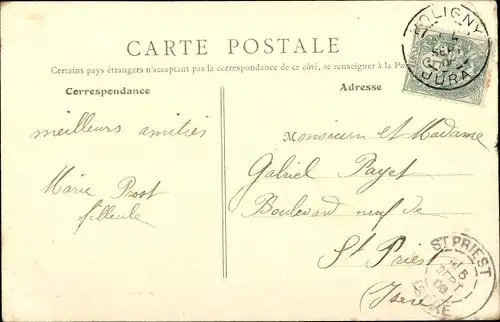 CARTE POSTALE
Certains pays étrangers n'acceptant pas la correspondance de ce côté, se renseigner à la Pos
Correspondance
Adresse
POLIGNY
SEPT
JURA
meilleurs amitiés
Marie Prost
filleule
Monsieur et Madame
Gabriel Payet
Boulevard neuf de
St Priest
(Isère)
ST PRIEST
5
SEPT
08
ISERE